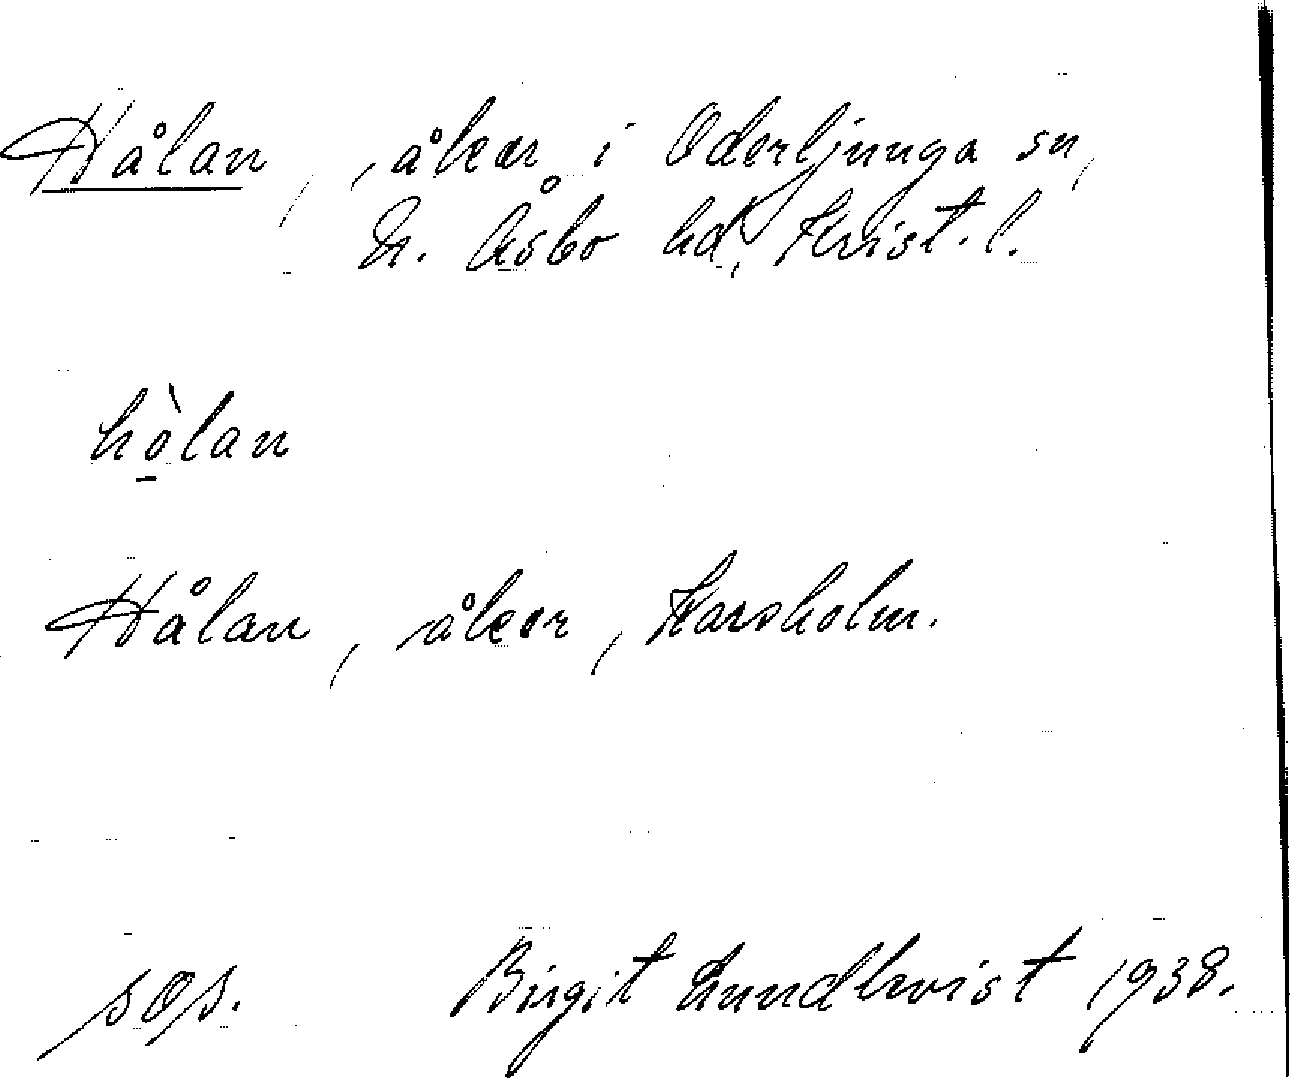 Hålan, åker i Oderljunga sn,
N. Åsbo hd, Krist. l.
hòlan
Hålan, åker, Karsholm.
sOs. Birgit Lundkvist 1938.